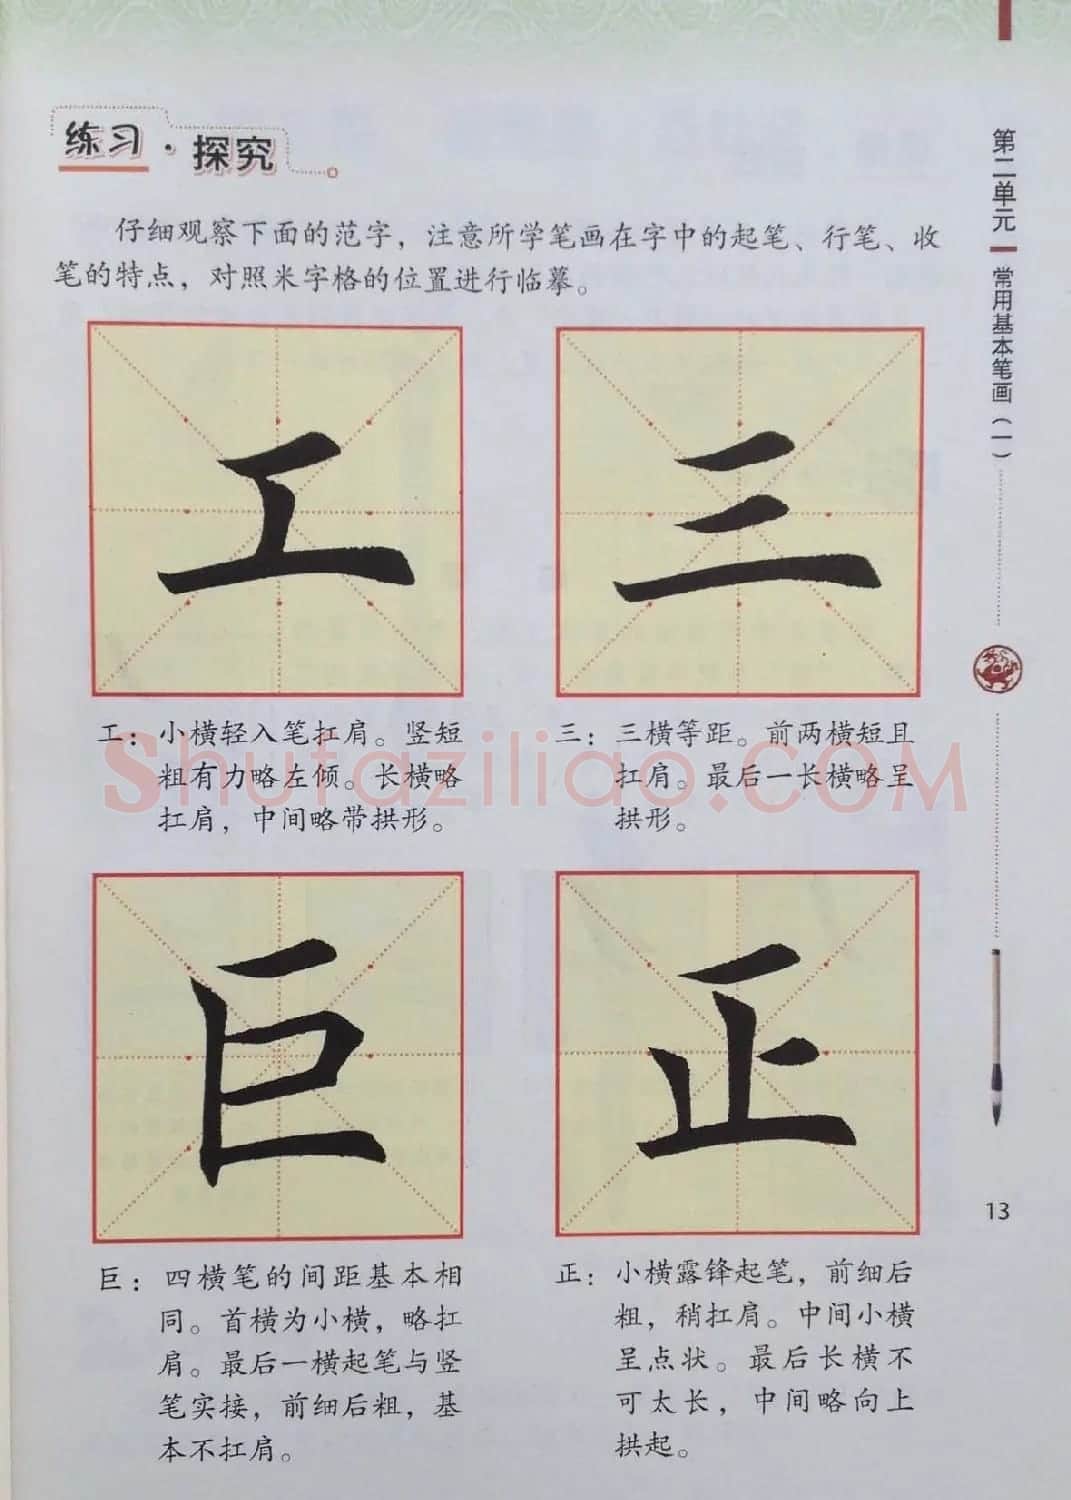 练习·探究
仔细观察下面的范字，注意所学笔画在字中的起笔、行笔、收
笔的特点，对照米字格的位置进行临摹。
工
三
工：小横轻入笔扛肩。竖短
粗有力略左倾。长横略
扛肩，中间略带拱形。
三：三横等距。前两横短且
扛肩。最后一长横略呈
拱形。
巨
正
巨：四横笔的间距基本相
同。首横为小横，略扛
肩。最后一横起笔与竖
笔实接，前细后粗，基
本不扛肩。
正：小横露锋起笔，前细后
粗，稍扛肩。中间小横
呈点状。最后长横不
可太长，中间略向上
拱起。
第二单元
常用基本笔画（一）
13
Shufaziliao.COM